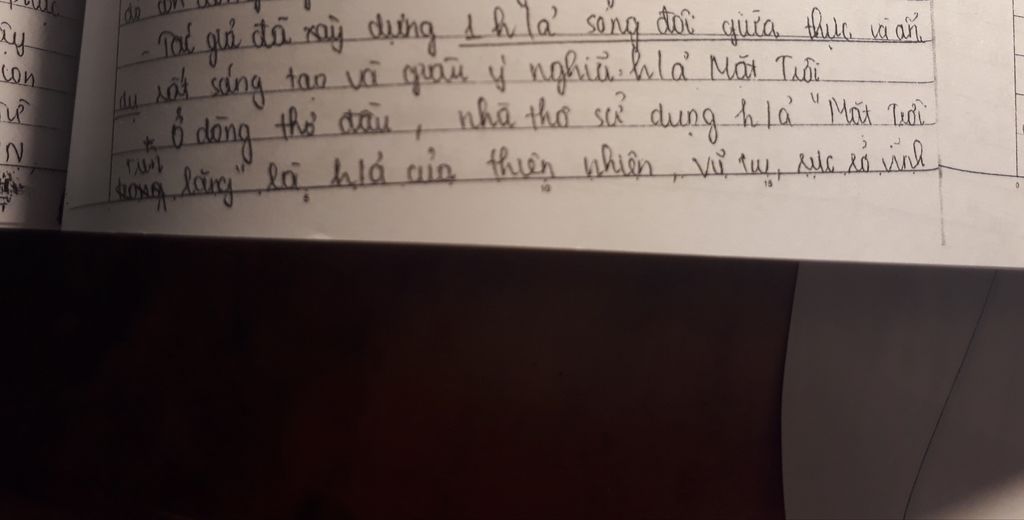 - Tác giả đã xây dựng 1 h/ả sóng đôi giữa thực và ẩn
dụ rất sáng tạo và giàu ý nghĩa: h/ả Mặt Trời
* Ở dòng thơ đầu, nhà thơ sử dụng h/ả "Mặt Trời
trên lăng" là h/ả của thiên nhiên, vũ trụ, rực rỡ vĩnh